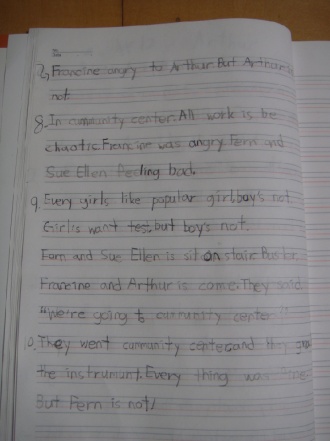 7, Francine angry to Arthur. But Arthur is
not.
8. In cummunity center. All work is be
chaotic. Francine was angry. Fern and
Sue Ellen feeling bad.
9. Every girls like popular girl, boy's not.
Girl's want test, but boy's not.
Farn and Sue Ellen is sit on stair. Buster,
Francine and Arthur is come. They said
"We're going to cummunity center."
10. They went cummunity center and they
the instrument. Every thing was fine.
But Fern is not!